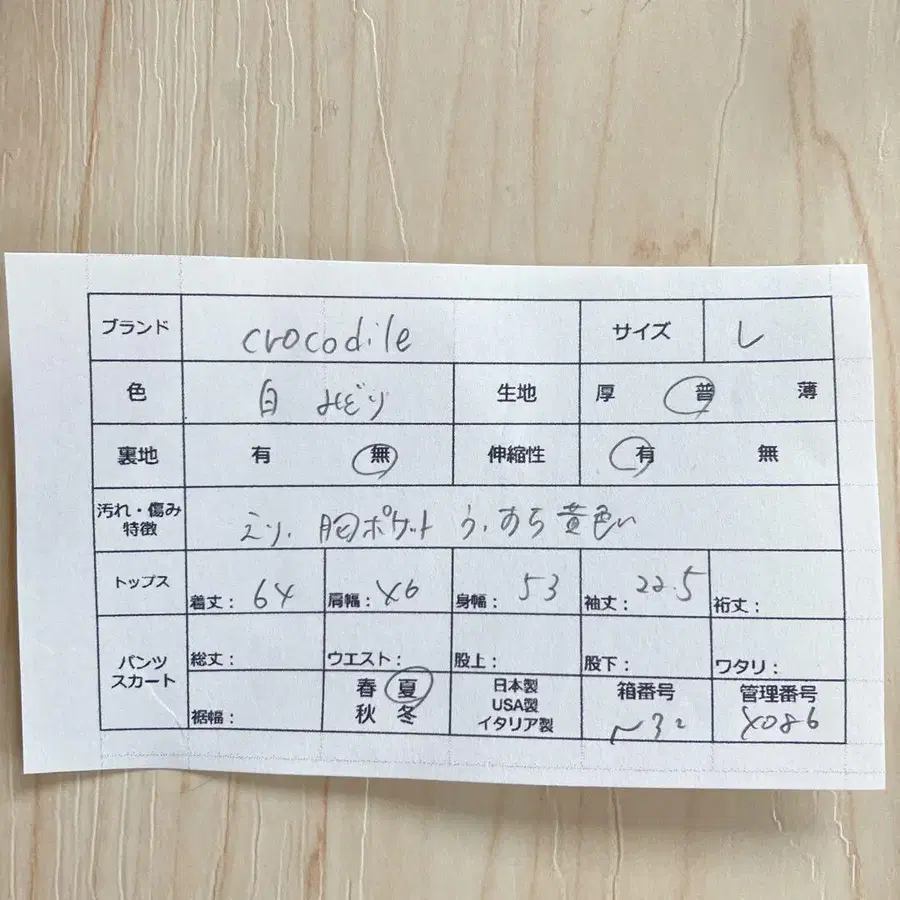 ブランド crocodile サイズ L
色 白 みどり 生地 厚 普 薄
裏地 有 無 伸縮性 有 無
汚れ・傷み
特徴 えり、胸ポケット うっすら黄色い
トップス 着丈: 64 肩幅: 46 身幅: 53 袖丈: 22.5 裄丈:
パンツ
スカート 総丈: ウエスト: 股上: 股下: ワタリ:
裾幅: 春 夏
秋 冬
日本製
USA製
イタリア製
箱番号
管理番号
4086